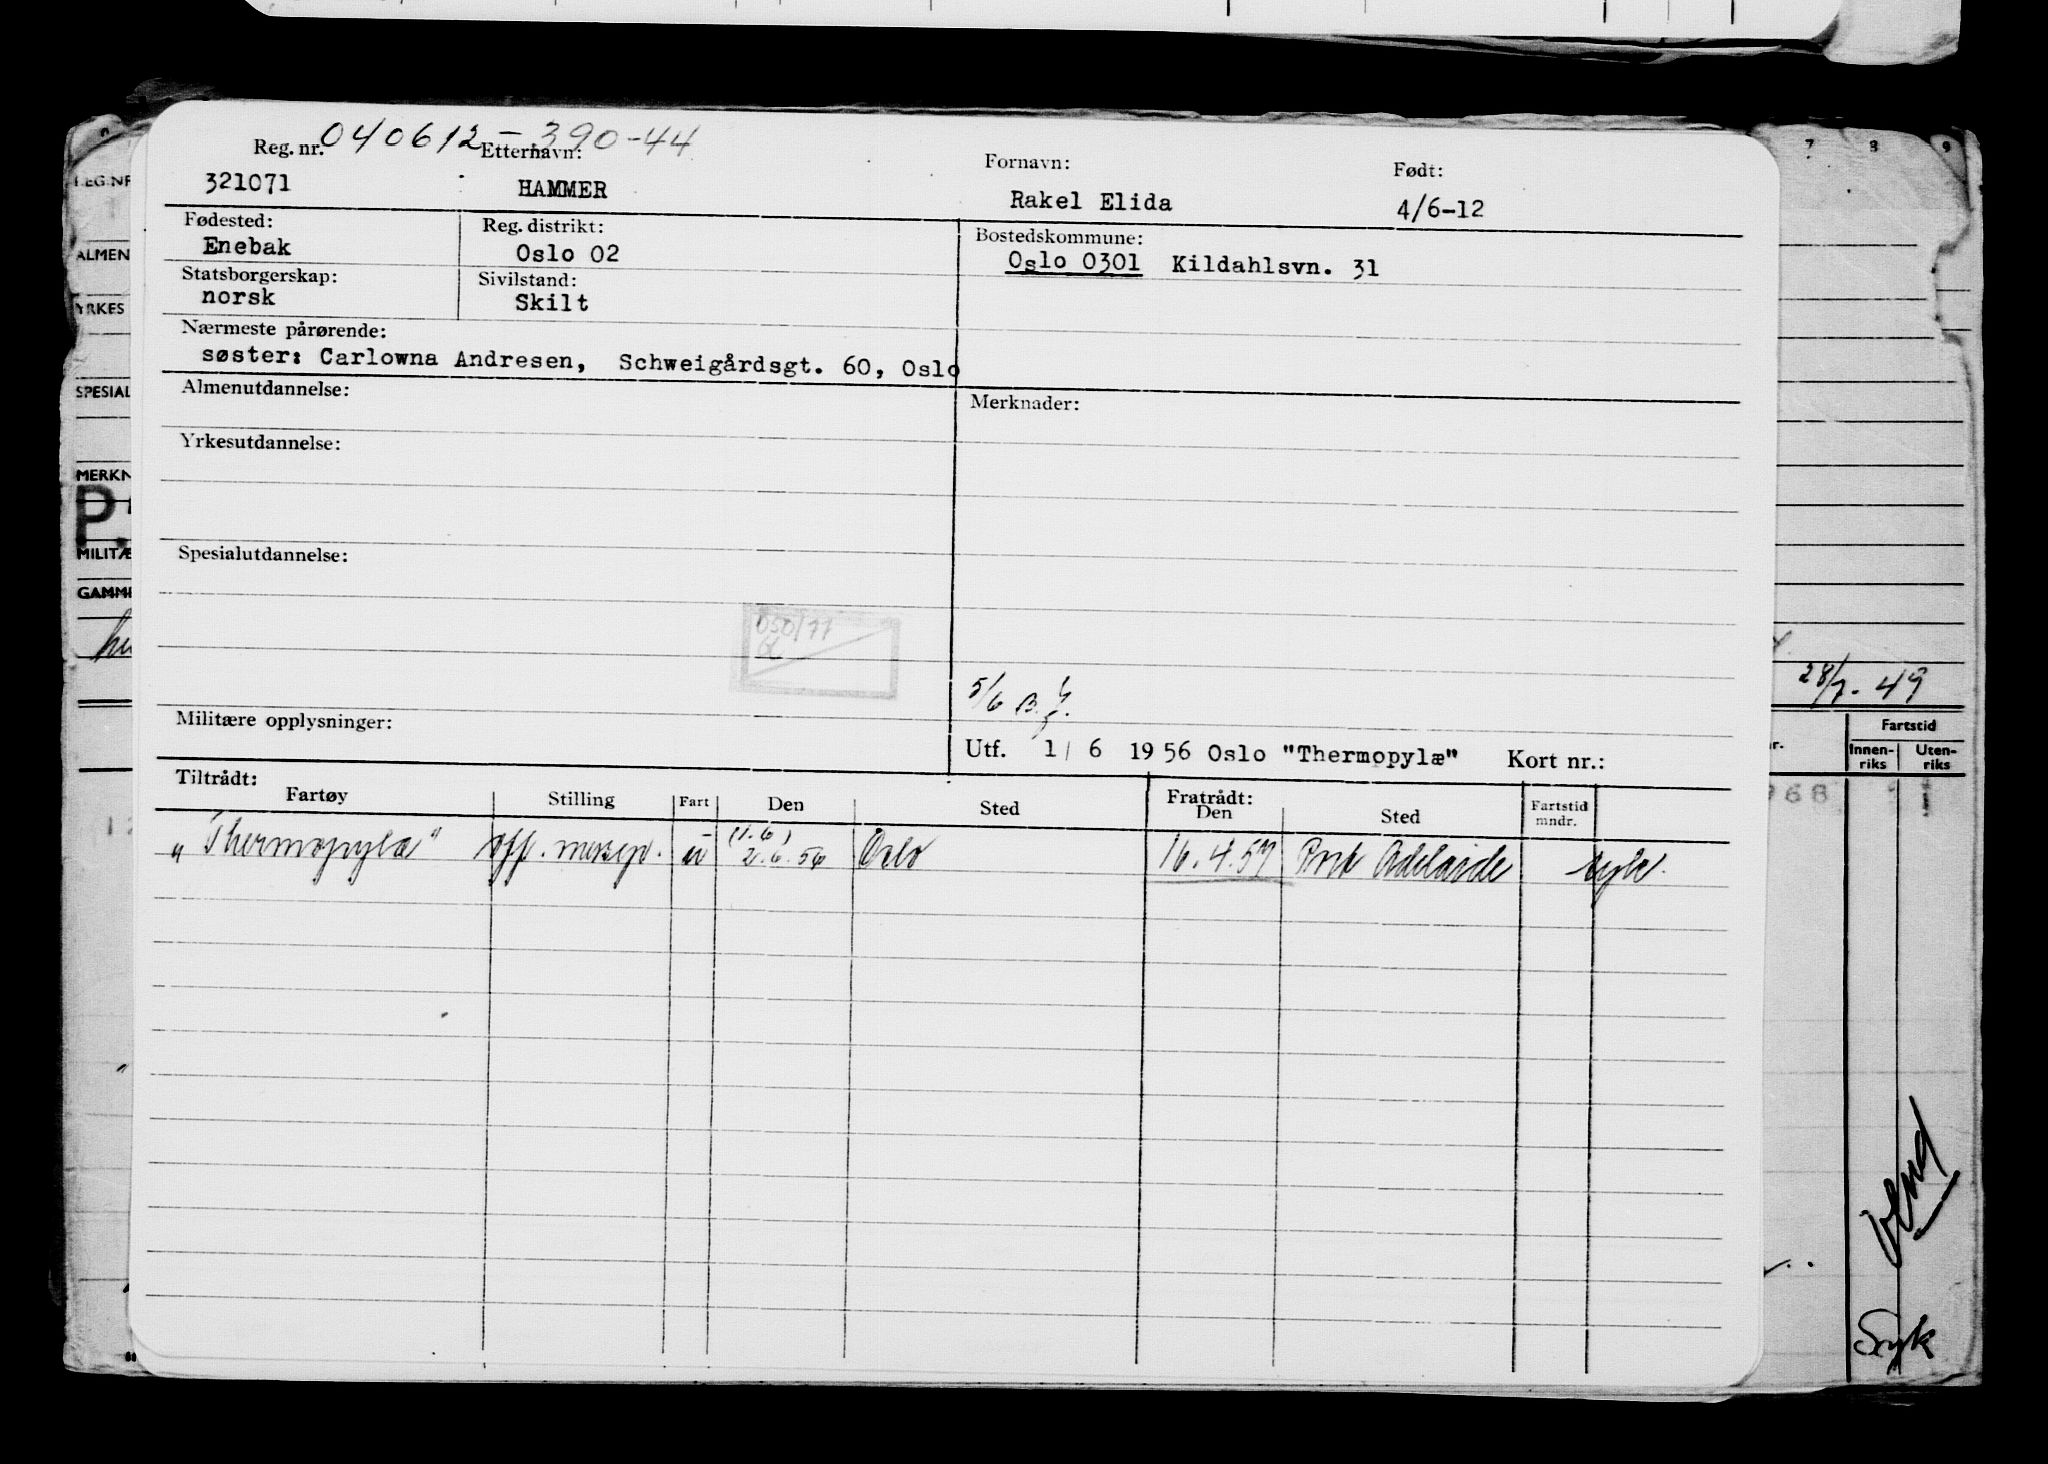 040612-390-44
Reg. nr. Etternavn: Fornavn: Født:
321071 HAMMER Rakel Elida 4/6-12
Fødested: Reg. distrikt: Bostedskommune:
Enebak Oslo 02 Oslo 0301 Kildahlsvn. 31
Statsborgerskap: Sivilstand:
norsk Skilt
Nærmeste pårørende:
søster: Carlowna Andresen, Schweigårdsgt. 60, Oslo
Almenutdannelse: Merknader:
Yrkesutdannelse:
Spesialutdannelse:
050/77
5/6 B.
Militære opplysninger:
Utf. 1/ 6 1956 Oslo "Thermopylæ" Kort nr.:
Tiltrådt: Fratrådt:
Fartøy Stilling Fart Den Sted Den Sted Fartstid mndr.
(1.6)
"Thermopylæ" off. messep. u 2.6.56 Oslo 16.4.57 Port Adelaide syk
7 8 9
REG.NR
ALMEN
YRKES
SPESIAL
MERKN
P.
MILITÆ
GAMME
28/7-49
Fartstid
Innen-riks Uten-riks
968
12
Vend
Syk